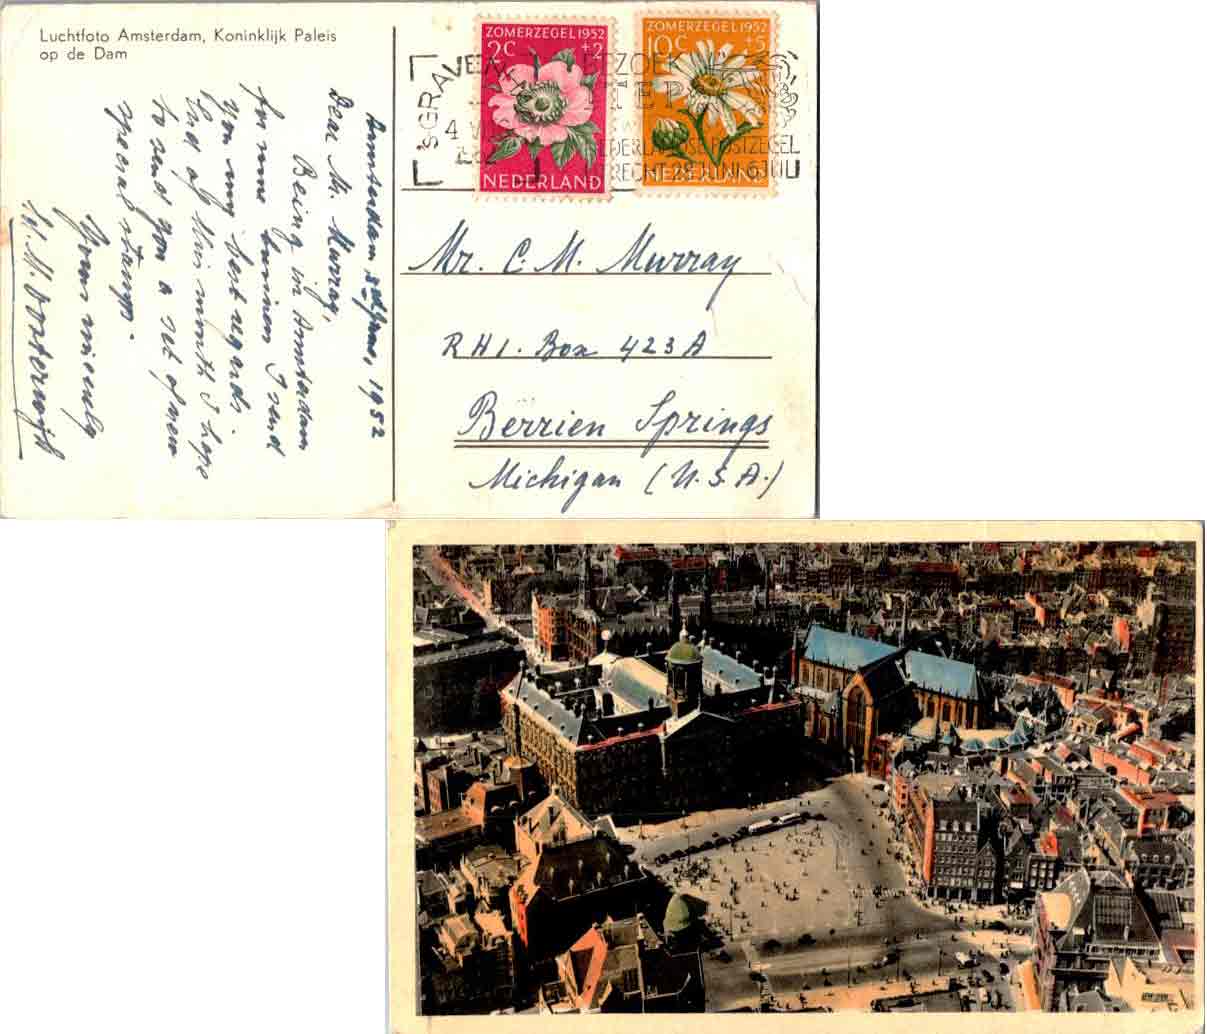 Luchtfoto Amsterdam, Koninklijk Paleis
op de Dam
Amsterdam 3d June, 1952
Dear Mr. Murray,
Being in Amsterdam
for some business I send
you my best regards.
End of this month I hope
to send you a set of new
special stamps.
Yours sincerely
W.H. Oosterwijk
ZOMERZEGEL 1952
2C +2
NEDERLAND
ZOMERZEGEL 1952
10C +5
NEDERLAND
'SGRAVENHAGE
4 VI
BEZOEK
ITEP
NEDERLANDSE POSTZEGEL
UTRECHT 28 JUNI 6 JULI
Mr. C. M. Murray
RH1. Box 423A
Berrien Springs
Michigan (U.S.A.)